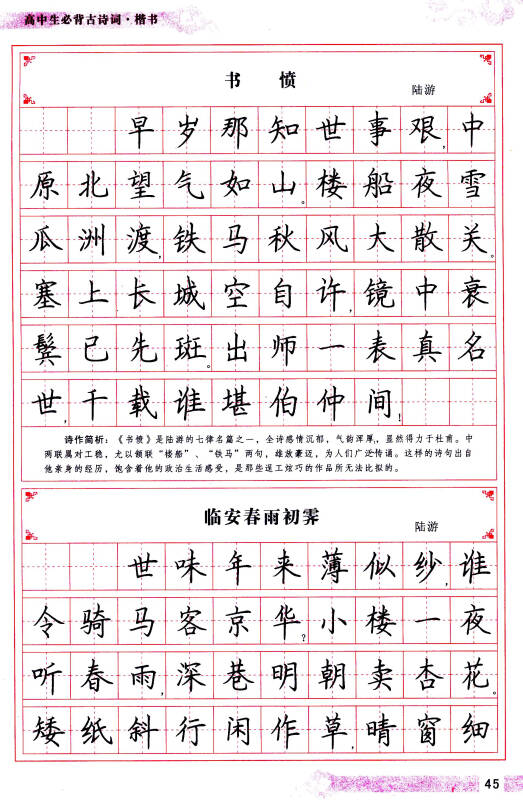 高中生必背古诗词·楷书
书 愤
陆游
早岁那知世事艰，中
原北望气如山。楼船夜雪
瓜洲渡，铁马秋风大散关。
塞上长城空自许，镜中衰
鬓已先斑。出师一表真名
世，千载谁堪伯仲间！
诗作简析：《书愤》是陆游的七律名篇之一，全诗感情沉郁，气韵浑厚，显然得力于杜甫。中
两联属对工稳，尤以颔联“楼船”、“铁马”两句，雄放豪迈，为人们广泛传诵。这样的诗句出自
他亲身的经历，饱含着他的政治生活感受，是那些逞工炫巧的作品所无法比拟的。
临安春雨初霁
陆游
世味年来薄似纱，谁
令骑马客京华？小楼一夜
听春雨，深巷明朝卖杏花。
矮纸斜行闲作草，晴窗细
45